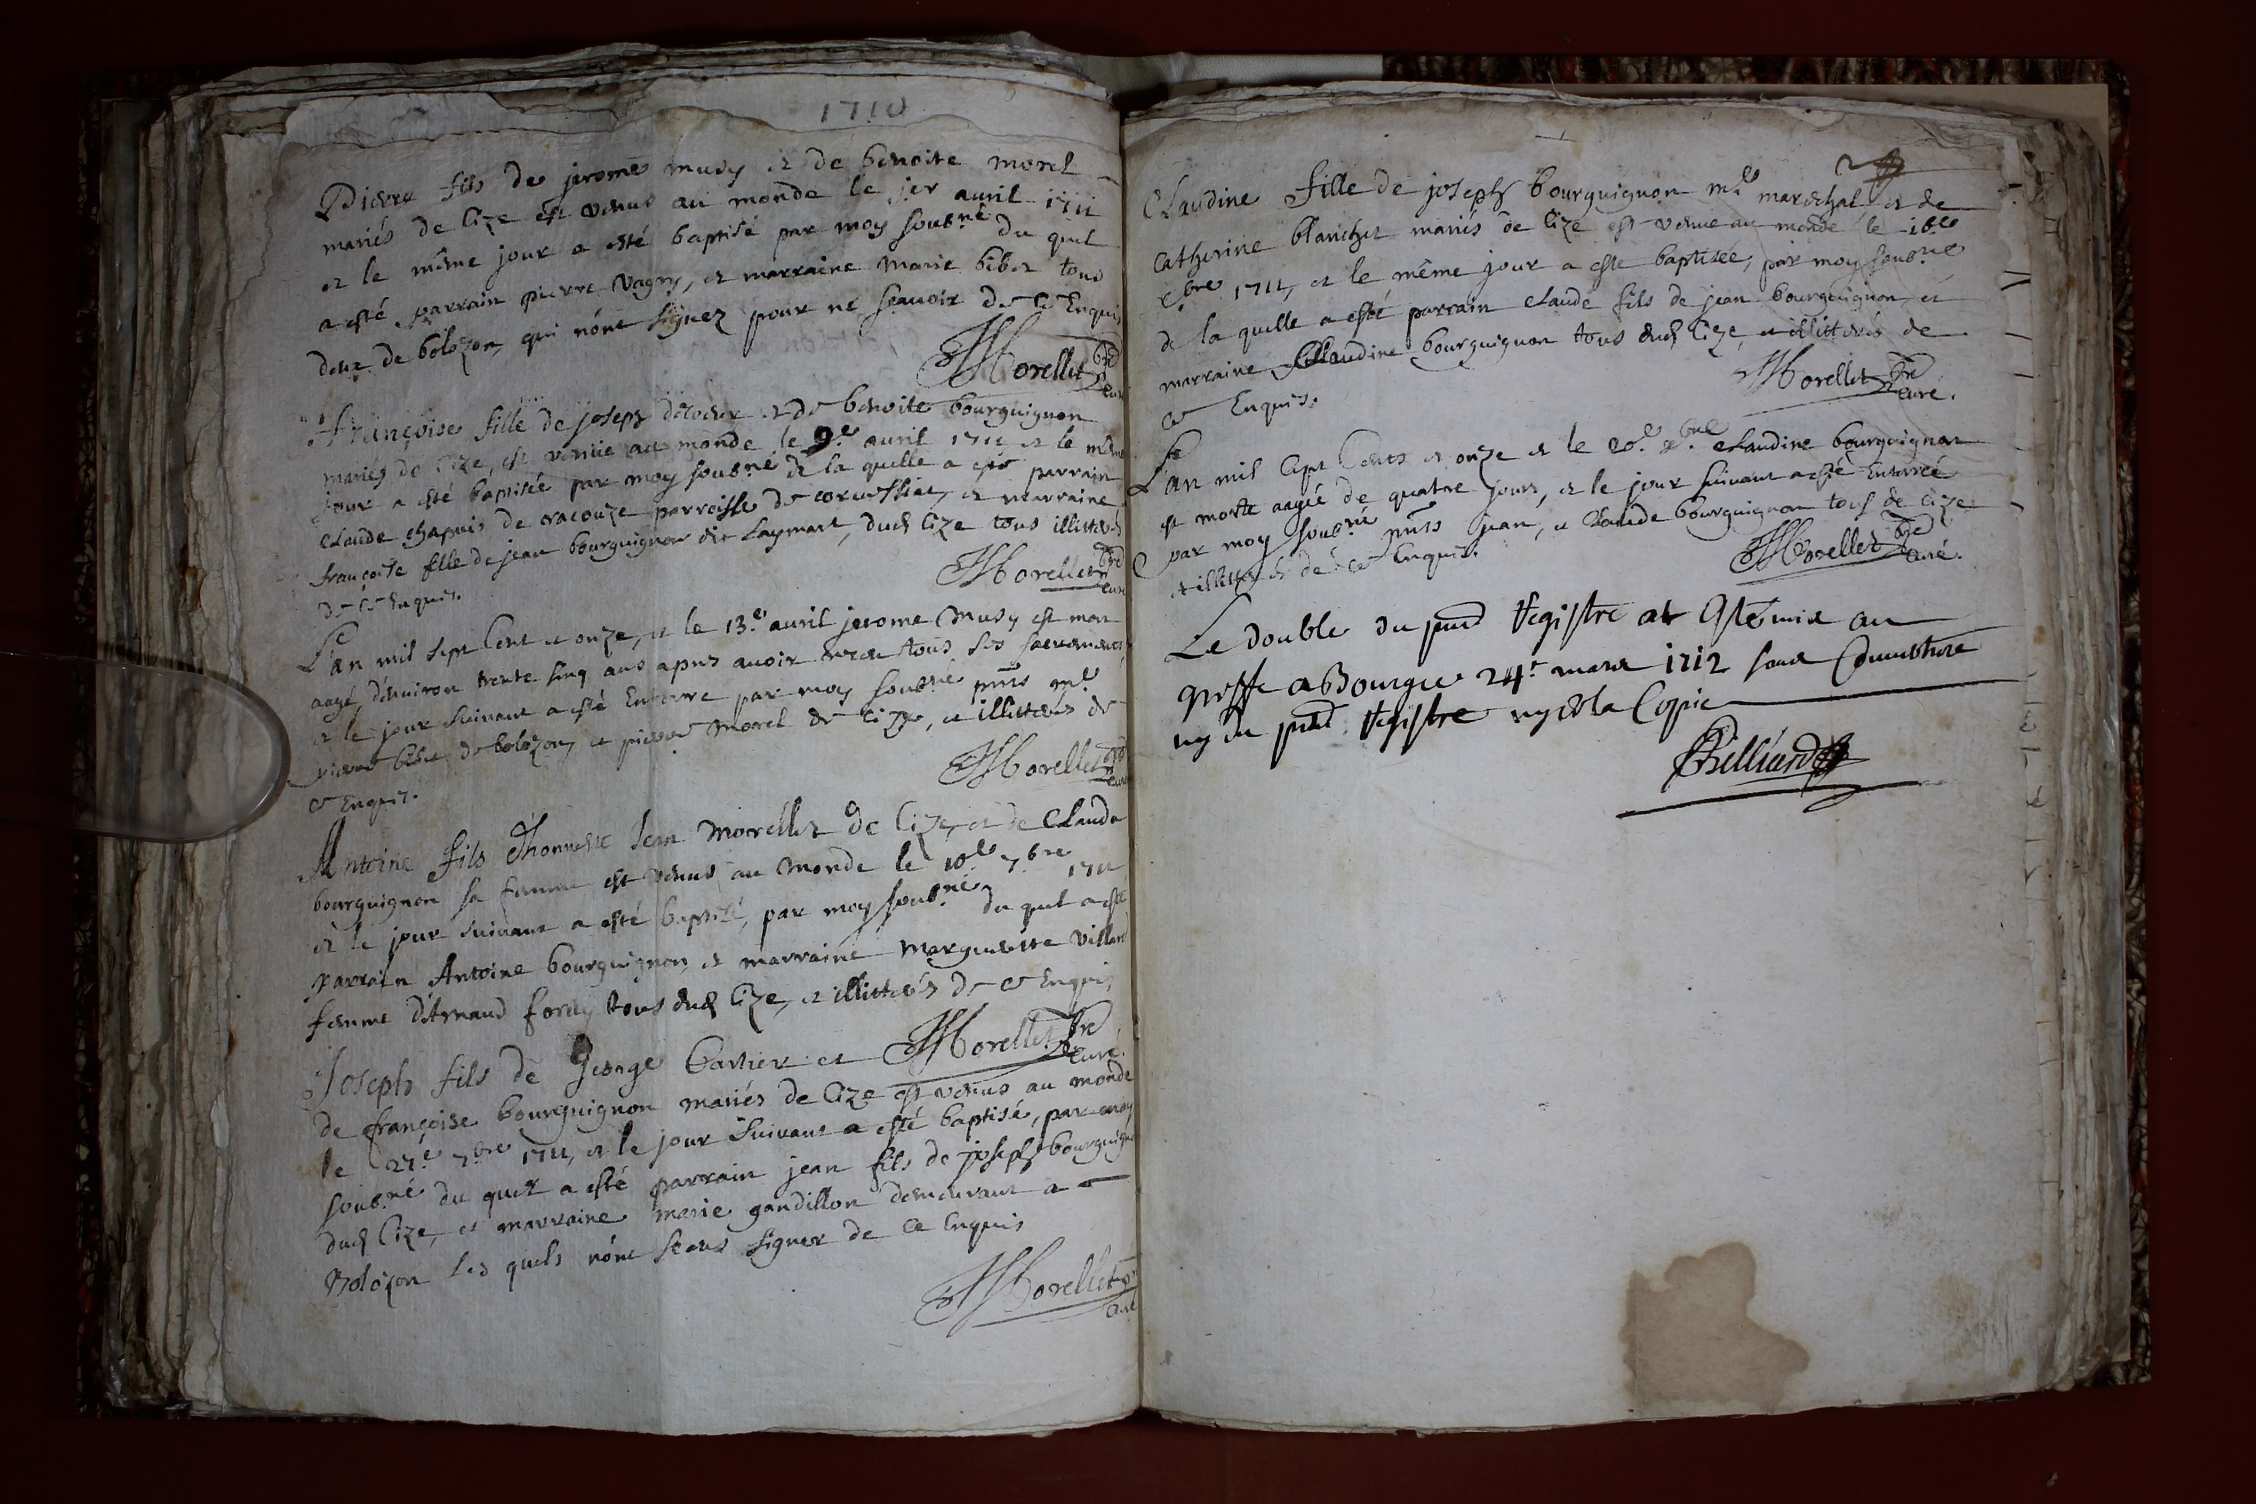 1710
Pierre fils de jerome musy et de benoite morel
mariés de Cize est venus au monde le jer avril 1711
et le même jour a esté baptisé par moy soub.né du quel
a esté parrain pierre vagny, et marraine Marie bibet tous
deux de bolozon, qui nónt signez pour ne sçauoir de ce Enquis
Morellet pre
curé
Françoise fille de joseph et de benoite bourguignon
mariés de Cize, est venüe au monde le 9.e avril 1711 et le même
jour a esté baptisée par moy soub.né de la quelle a esté parrain
Claude chapuis de racouze parroisse de corvessiat, et marraine
françoise fille de jean bourguignon dit Laymart, dud Cize tous illittérés
de ce Enquis.
Morellet pre
curé
L'an mil sept Cent et onze, et le 13.e avril jerome Musy est mort
aagé, d'énuiron trente sinq ans apres auoir receu tous ses sacrements
et le jour suiuant a esté Enterré par moy soub.né pnts m.e
pierre bibet de bolozon, et pierre Morel de Cize, et illittérés de
ce Enquis.
Morellet pre
curé
Antoine fils d'honneste Jean Morellet de Cize, et de Clauda
bourguignon sa femme est venus au Monde le 10.e 7.bre 1711
et le jour suiuant a esté baptisé, par moy soub.né du quel a esté
parrain Antoine bourguignon, et marraine Marguerite villard
femme d'Arnaud foray tous dud Cize, et illittérés de ce Enquis
Morellet pre
curé.
Joseph fils de George Cartier et
de françoise bourguignon mariés de Cize est venus au monde
le 27.e 7.bre 1711, et le jour suiuant a esté baptisé, par moy
soub.né du quel a esté parrain jean fils de joseph bourguignon
dud Cize, et marraine marie gandillon demeurant a
Bolozon les quels nónt sceus signer de ce Enquis
Morellet pre
curé
2
Claudine fille de joseph bourguignon m.e marechal et de
Catherine blanchet mariés de Cize est venue au monde le 16.e
bre 1711, et le même jour a esté baptisée, par moy soub.né
de la quelle a esté parrain Claude fils de jean bourguignon, et
marraine Claudine bourguignon tous dud Cize, et illittérés de
ce Enquis.
Morellet pre
curé.
L'an mil sept Cents et onze et le 20.e bre Claudine bourguignon
est morte aagée de quatre jours, et le jour suiuant a esté Enterrée
par moy soub.né pnts jean, et Claude bourguignon tous de Cize
et illittérés de ce Enquis.
Morellet pre
curé.
Le double du pnt Registre at esté mis au
greffe a Bourg ce 24.e mars 1712 sans
ny du pnt Registre ny de la Copie
Billiard